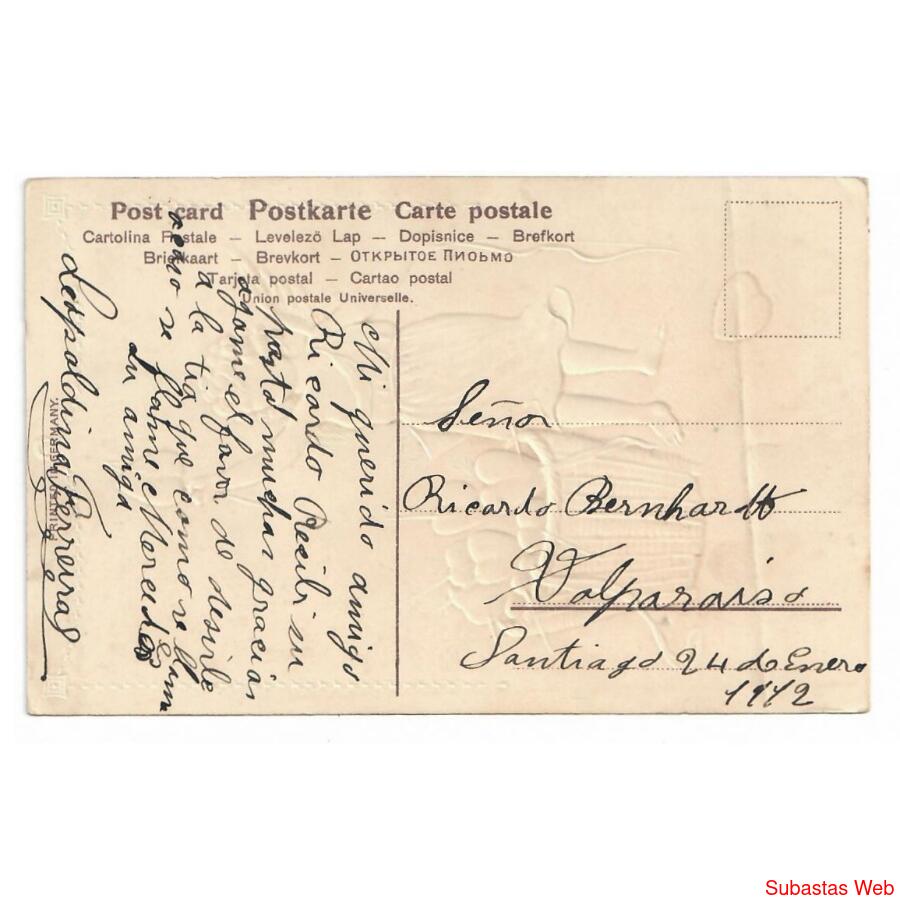 Post card Postkarte Carte postale
Cartolina Postale – Levelező Lap – Dopisnice – Brefkort
Briefkaart – Brevkort – Открытое Письмо
Tarjeta postal – Cartao postal
Union postale Universelle.
Mi querido amigo
Ricardo Recibi su
postal muchas gracias
agame el favor de desirle
a la tia que como se llama
se llame Mercedes
Su amiga
Leopoldina Ferreiras
PRINTED IN GERMANY.
Señor
Ricardo Bernhardt
Valparaiso
Santiago 24 de Enero
1912
Subastas Web